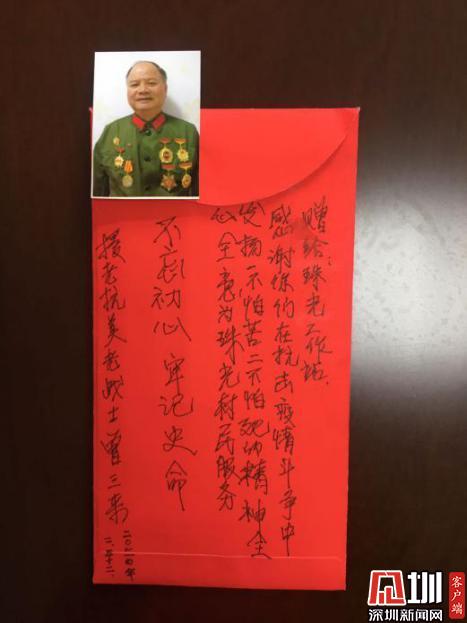 赠给:珠光工作站.
感谢你们在抗击疫情斗争中
发扬一不怕苦二不怕死的精神全
心全意为珠光村民服务
不忘初心 牢记史命
援老抗美老战士曾三来
二〇二〇年
深圳新闻网
客户端